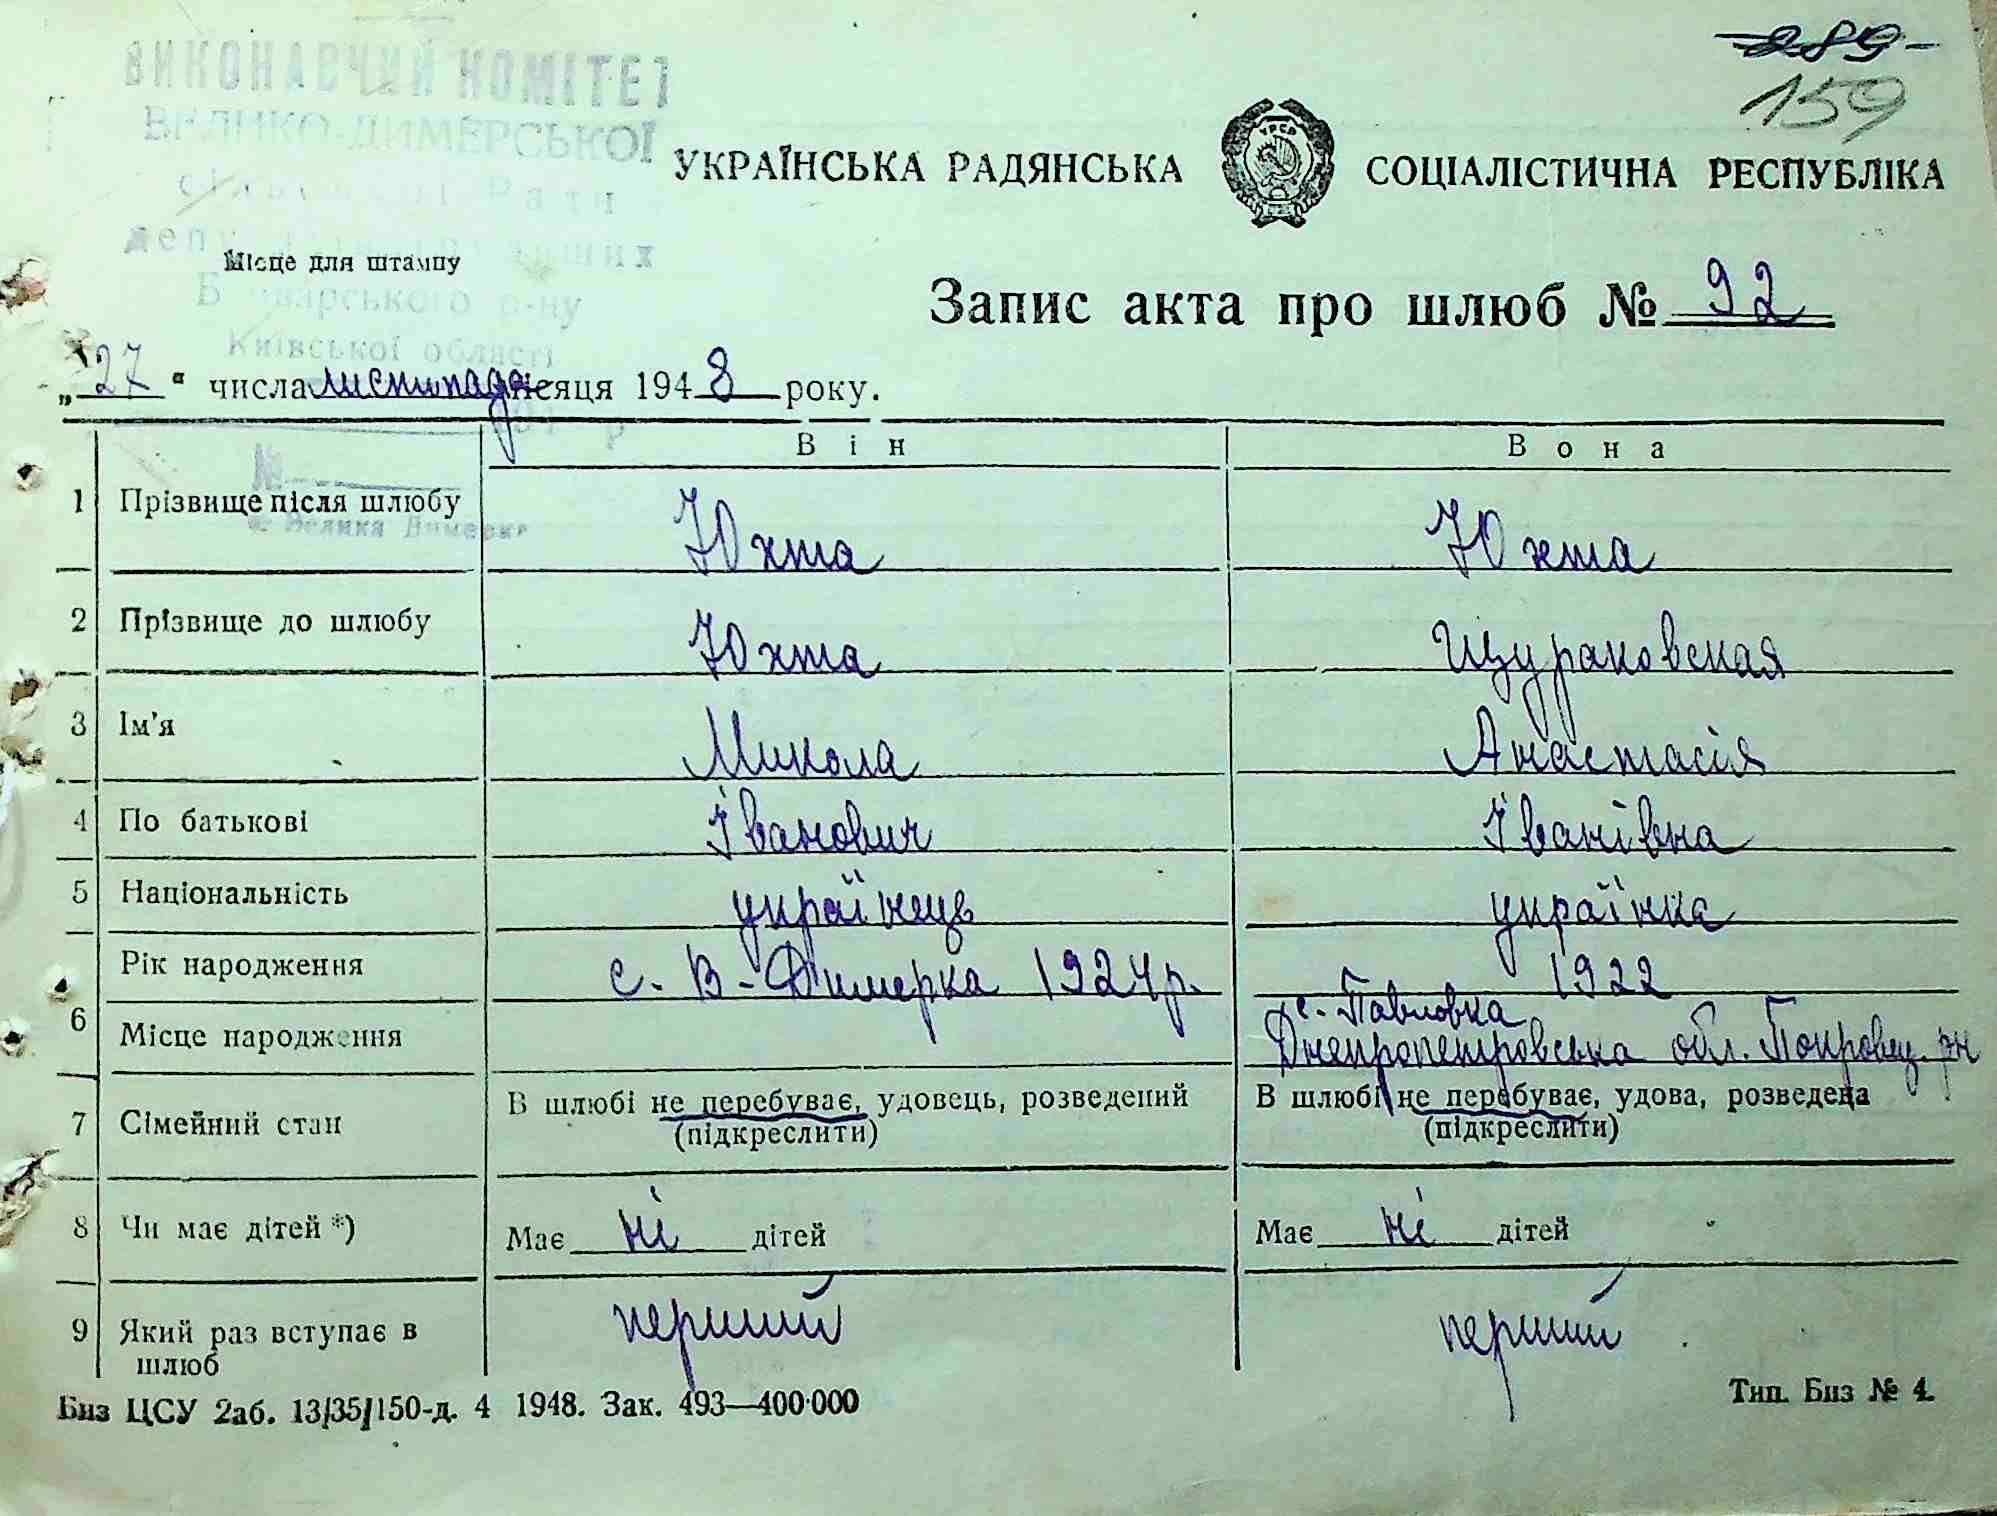 289
159
ВИКОНАВЧИЙ КОМІТЕТ
ВЕЛИКО-ДИМЕРСЬКОЇ
Ради
УКРАЇНСЬКА РАДЯНСЬКА СОЦІАЛІСТИЧНА РЕСПУБЛІКА
УРСР
Місце для штампу
Броварського р-ну
Київської області
Запис акта про шлюб № 92
„27“ числа листопада місяця 1948 року.
Він Вона
№
1 Прізвище після шлюбу Юхта Юхта
с. Велика Димерка
2 Прізвище до шлюбу Юхта Щураковская
3 Ім'я Микола Анастасія
4 По батькові Іванович Іванівна
5 Національність українець українка
Рік народження с. В-Димерка 1924 р. 1922
6 Місце народження с. Павловка
Днепропетровська обл. Покровц. рн
7 Сімейний стан В шлюбі не перебуває, удовець, розведений В шлюбі не перебуває, удова, розведена
(підкреслити) (підкреслити)
8 Чи має дітей *) Має ні дітей Має ні дітей
9 Який раз вступає в шлюб перший перший
Биз ЦСУ 2аб. 13/35/150-д. 4 1948. Зак. 493—400·000 Тип. Биз № 4.